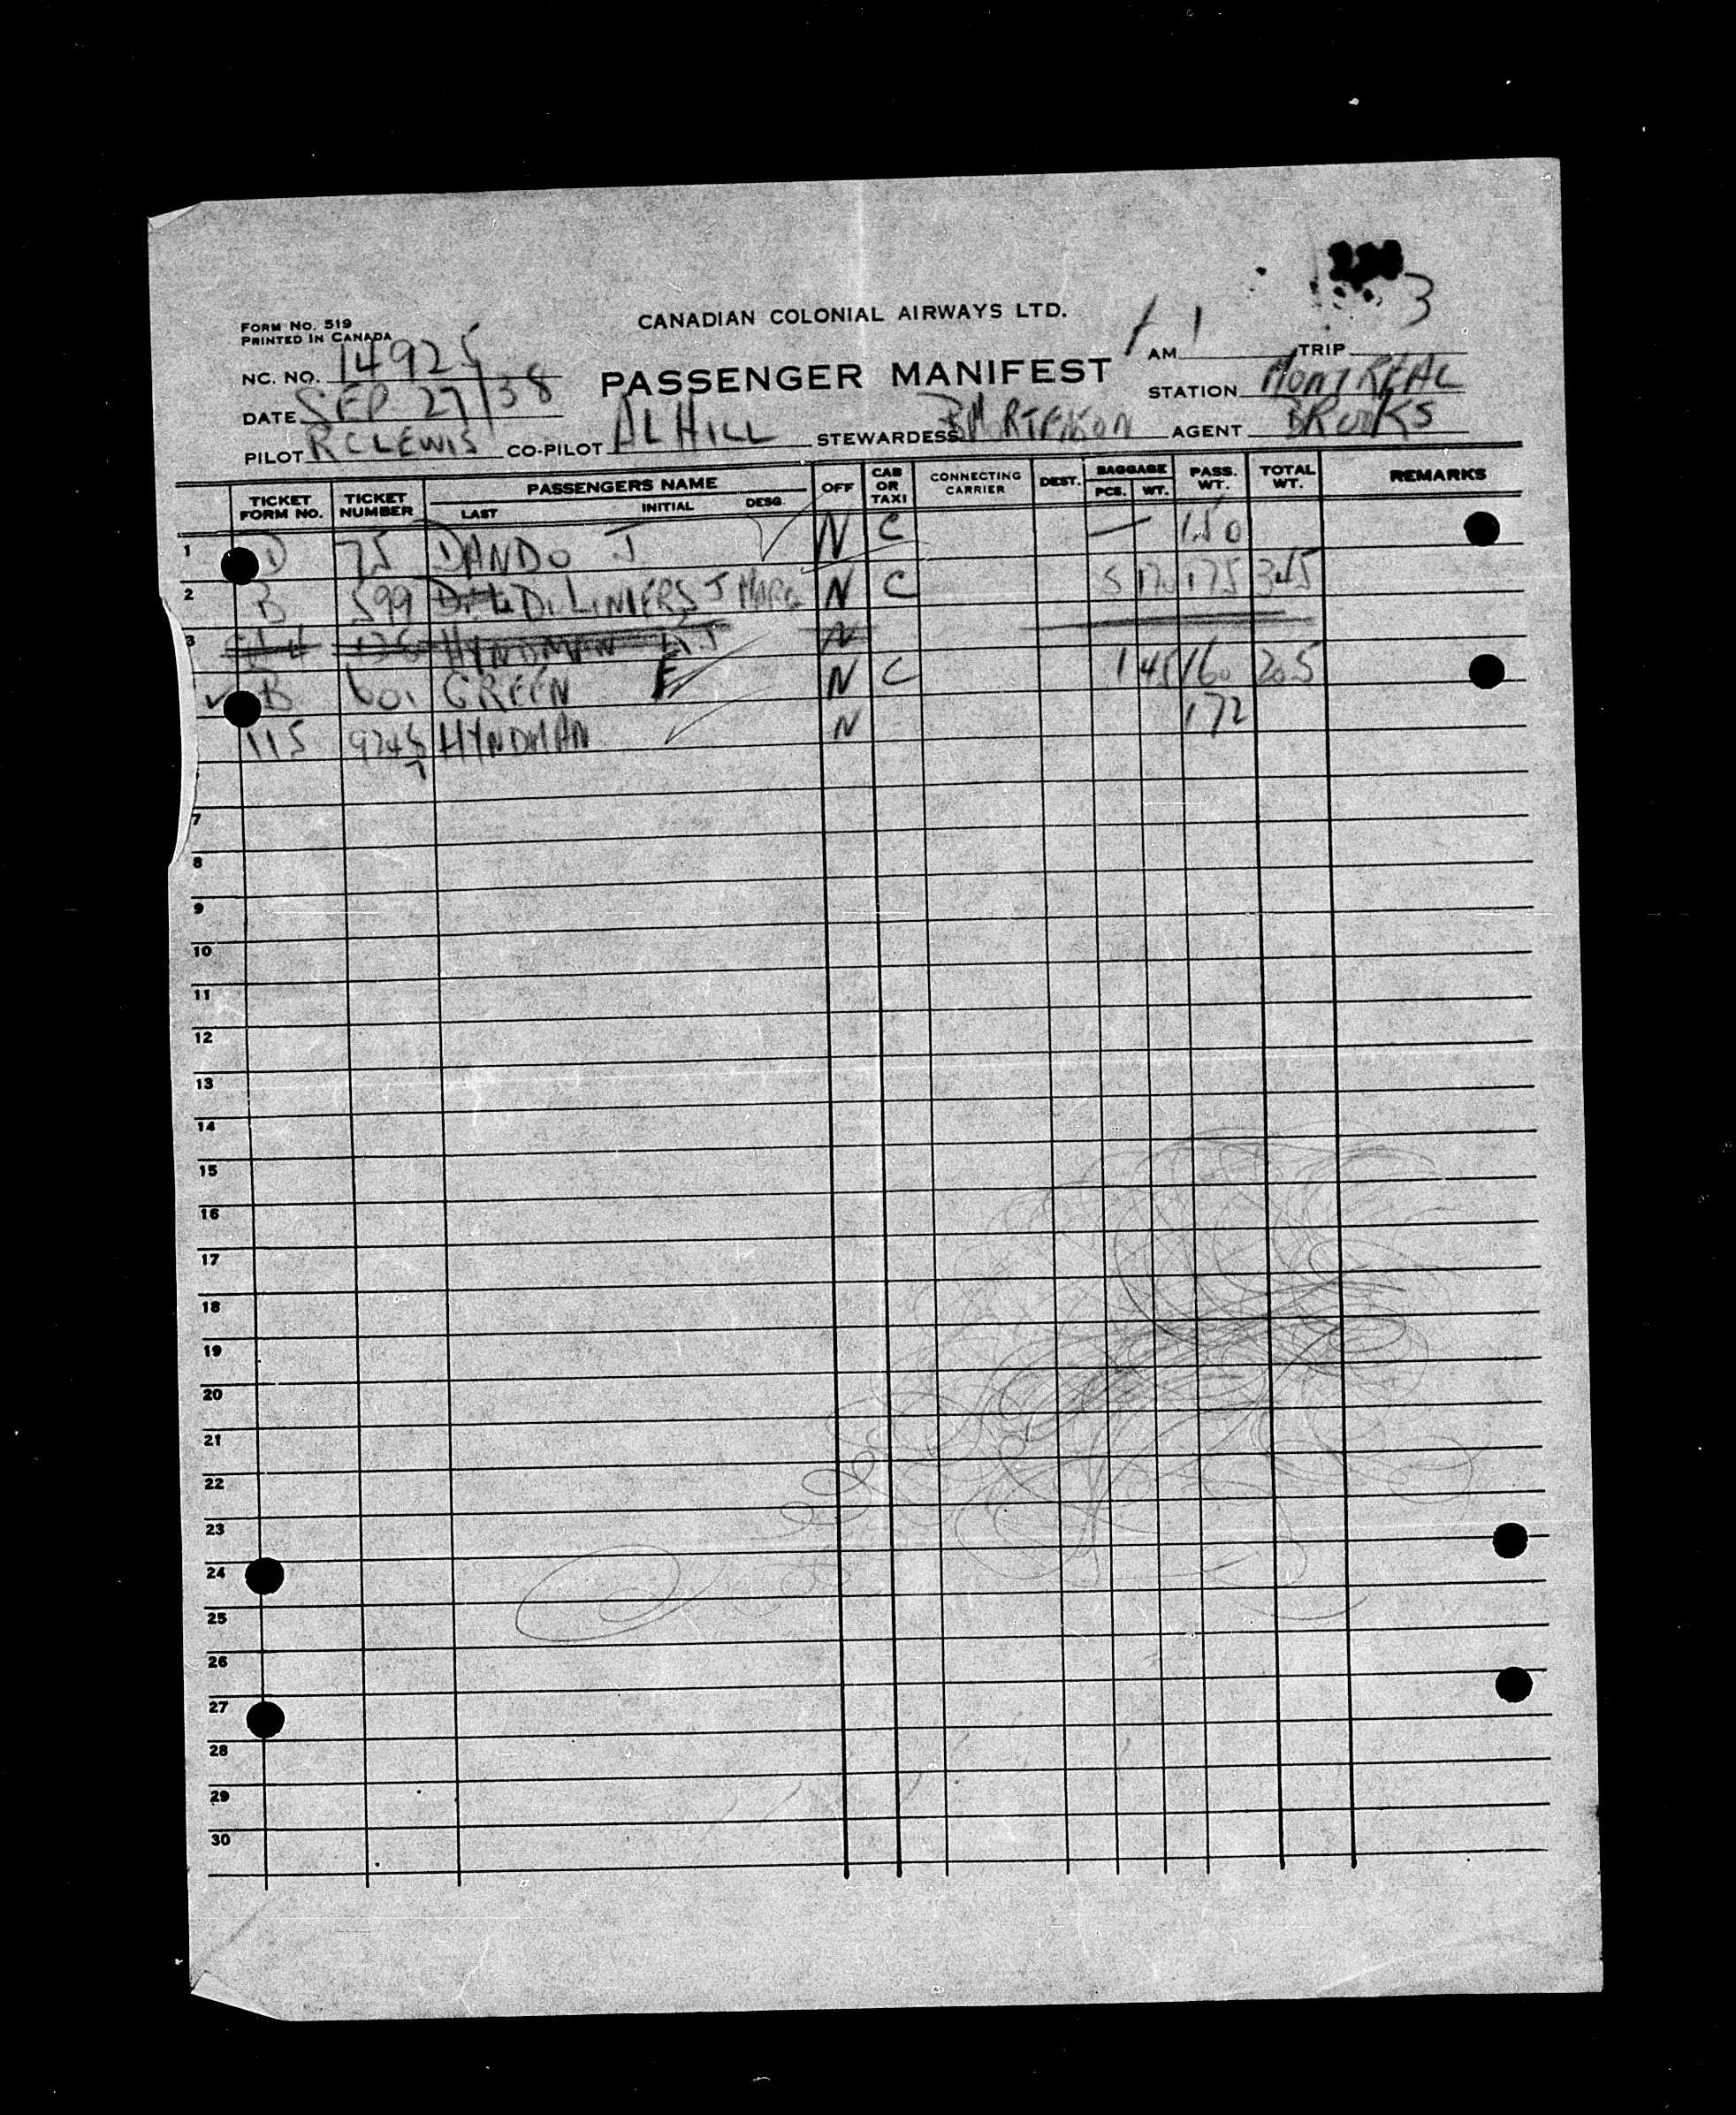 3
FORM NO. 519
PRINTED IN CANADA
CANADIAN COLONIAL AIRWAYS LTD.
NC. NO. 14925
PASSENGER MANIFEST
AM 1 TRIP
DATE SEP 27/38
STATION MONTREAL
PILOT RCLEWIS CO-PILOT AL HILL STEWARDESS AGENT BROOKS
TICKET FORM NO. TICKET NUMBER PASSENGERS NAME LAST INITIAL DESG. OFF CAB OR TAXI CONNECTING CARRIER DEST. BAGGAGE PCS. WT. PASS. WT. TOTAL WT. REMARKS
1 D 75 DANDO J N C — 150
2 B 599 DE LINIERS J N C 5 170 175 345
3 HYNDMAN H.J N
B 601 GREEN F N C 1 45 160 205
115 9245 HYNDMAN N 172
7
7
8
9
10
11
12
13
14
15
16
17
18
19
20
21
22
23
24
25
26
27
28
29
30